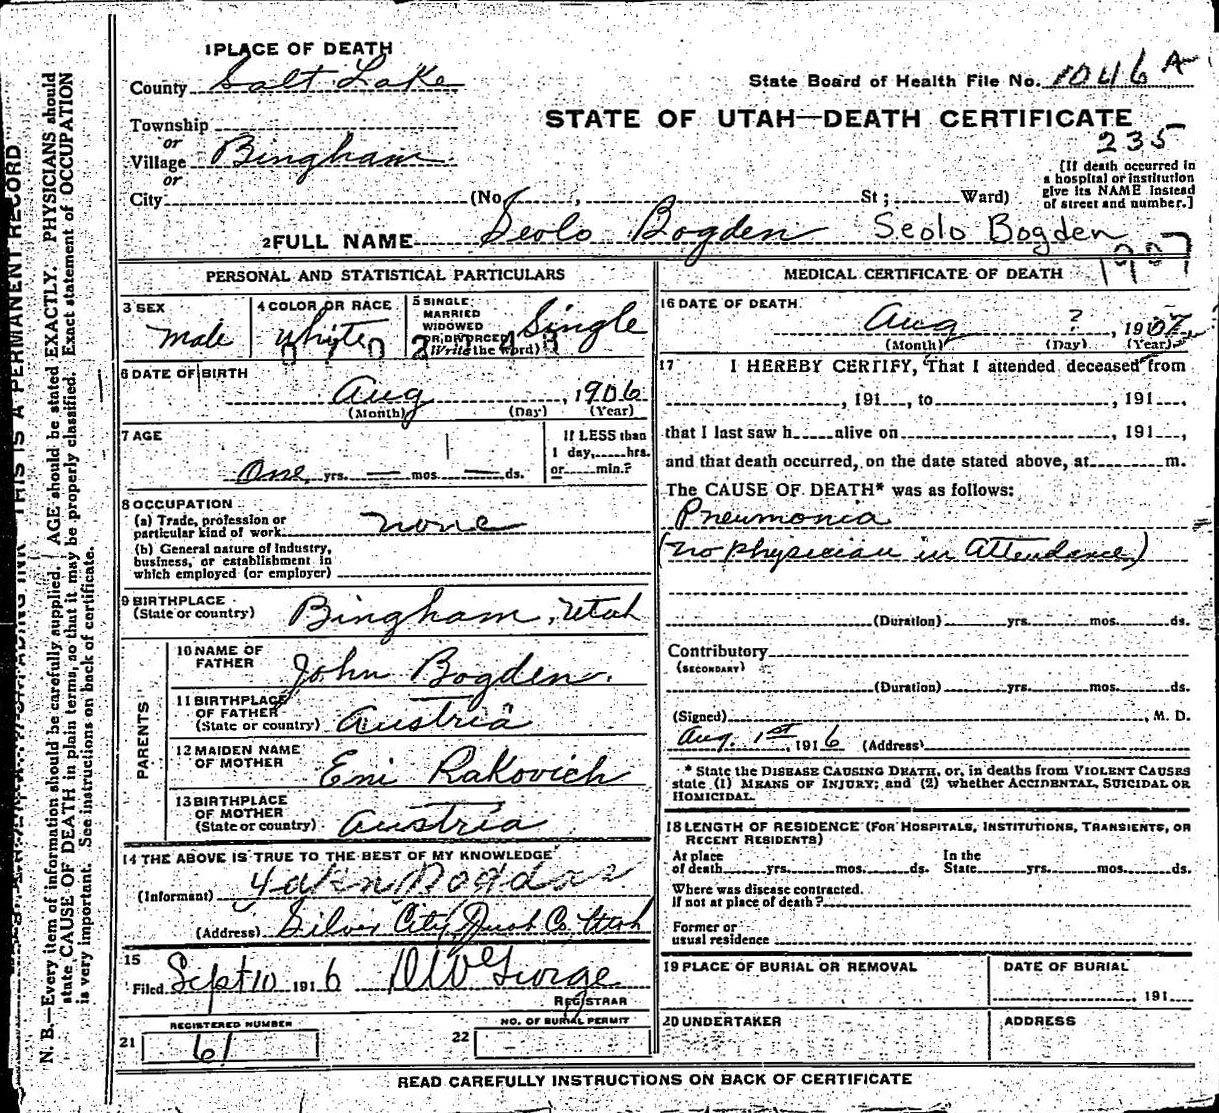 1 PLACE OF DEATH
County Salt Lake
State Board of Health File No. 1046 A
STATE OF UTAH—DEATH CERTIFICATE
235
Township
or
Village Bingham
or
City (No. , St ; Ward)
[If death occurred in
a hospital or institution
give its NAME instead
of street and number.]
2 FULL NAME Seolo Bogden Seolo Bogden
1907
PERSONAL AND STATISTICAL PARTICULARS
3 SEX
male
4 COLOR OR RACE
white
5 SINGLE
MARRIED
WIDOWED
OR DIVORCED
(Write the word)
Single
6 DATE OF BIRTH
Aug , 1906
(Month) (Day) (Year)
7 AGE
One yrs. — mos. — ds.
If LESS than
1 day, hrs.
or min.?
8 OCCUPATION
(a) Trade, profession or
particular kind of work none
(b) General nature of industry,
business, or establishment in
which employed (or employer)
9 BIRTHPLACE
(State or country) Bingham, Utah
PARENTS
10 NAME OF
FATHER John Bogden.
11 BIRTHPLACE
OF FATHER
(State or country) Austria
12 MAIDEN NAME
OF MOTHER Emi Rakovich
13 BIRTHPLACE
OF MOTHER
(State or country) Austria
14 THE ABOVE IS TRUE TO THE BEST OF MY KNOWLEDGE
(Informant)
(Address) Silver City, Juab Co, Utah
15
Filed Sept 10 1916
REGISTRAR
REGISTERED NUMBER
21 61
NO. OF BURIAL PERMIT
22
MEDICAL CERTIFICATE OF DEATH
16 DATE OF DEATH
Aug ? , 1907
(Month) (Day) (Year)
17 I HEREBY CERTIFY, That I attended deceased from
, 191 , to , 191 ,
that I last saw h alive on , 191 ,
and that death occurred, on the date stated above, at m.
The CAUSE OF DEATH* was as follows:
Pneumonia
(no physician in attendance)
(Duration) yrs. mos. ds.
Contributory
(SECONDARY)
(Duration) yrs. mos. ds.
(Signed) , M. D.
Aug. 1st, 1916 (Address)
* State the DISEASE CAUSING DEATH, or, in deaths from VIOLENT CAUSES
state (1) MEANS OF INJURY; and (2) whether ACCIDENTAL, SUICIDAL OR
HOMICIDAL.
18 LENGTH OF RESIDENCE (FOR HOSPITALS, INSTITUTIONS, TRANSIENTS, OR
RECENT RESIDENTS)
At place
of death yrs. mos. ds.
In the
State yrs. mos. ds.
Where was disease contracted.
if not at place of death?
Former or
usual residence
19 PLACE OF BURIAL OR REMOVAL
DATE OF BURIAL
, 191
20 UNDERTAKER
ADDRESS
READ CAREFULLY INSTRUCTIONS ON BACK OF CERTIFICATE
THIS IS A PERMANENT RECORD
N. B.—Every item of information should be carefully supplied. AGE should be stated EXACTLY. PHYSICIANS should
state CAUSE OF DEATH in plain terms, so that it may be properly classified. Exact statement of OCCUPATION
is very important. See instructions on back of certificate.